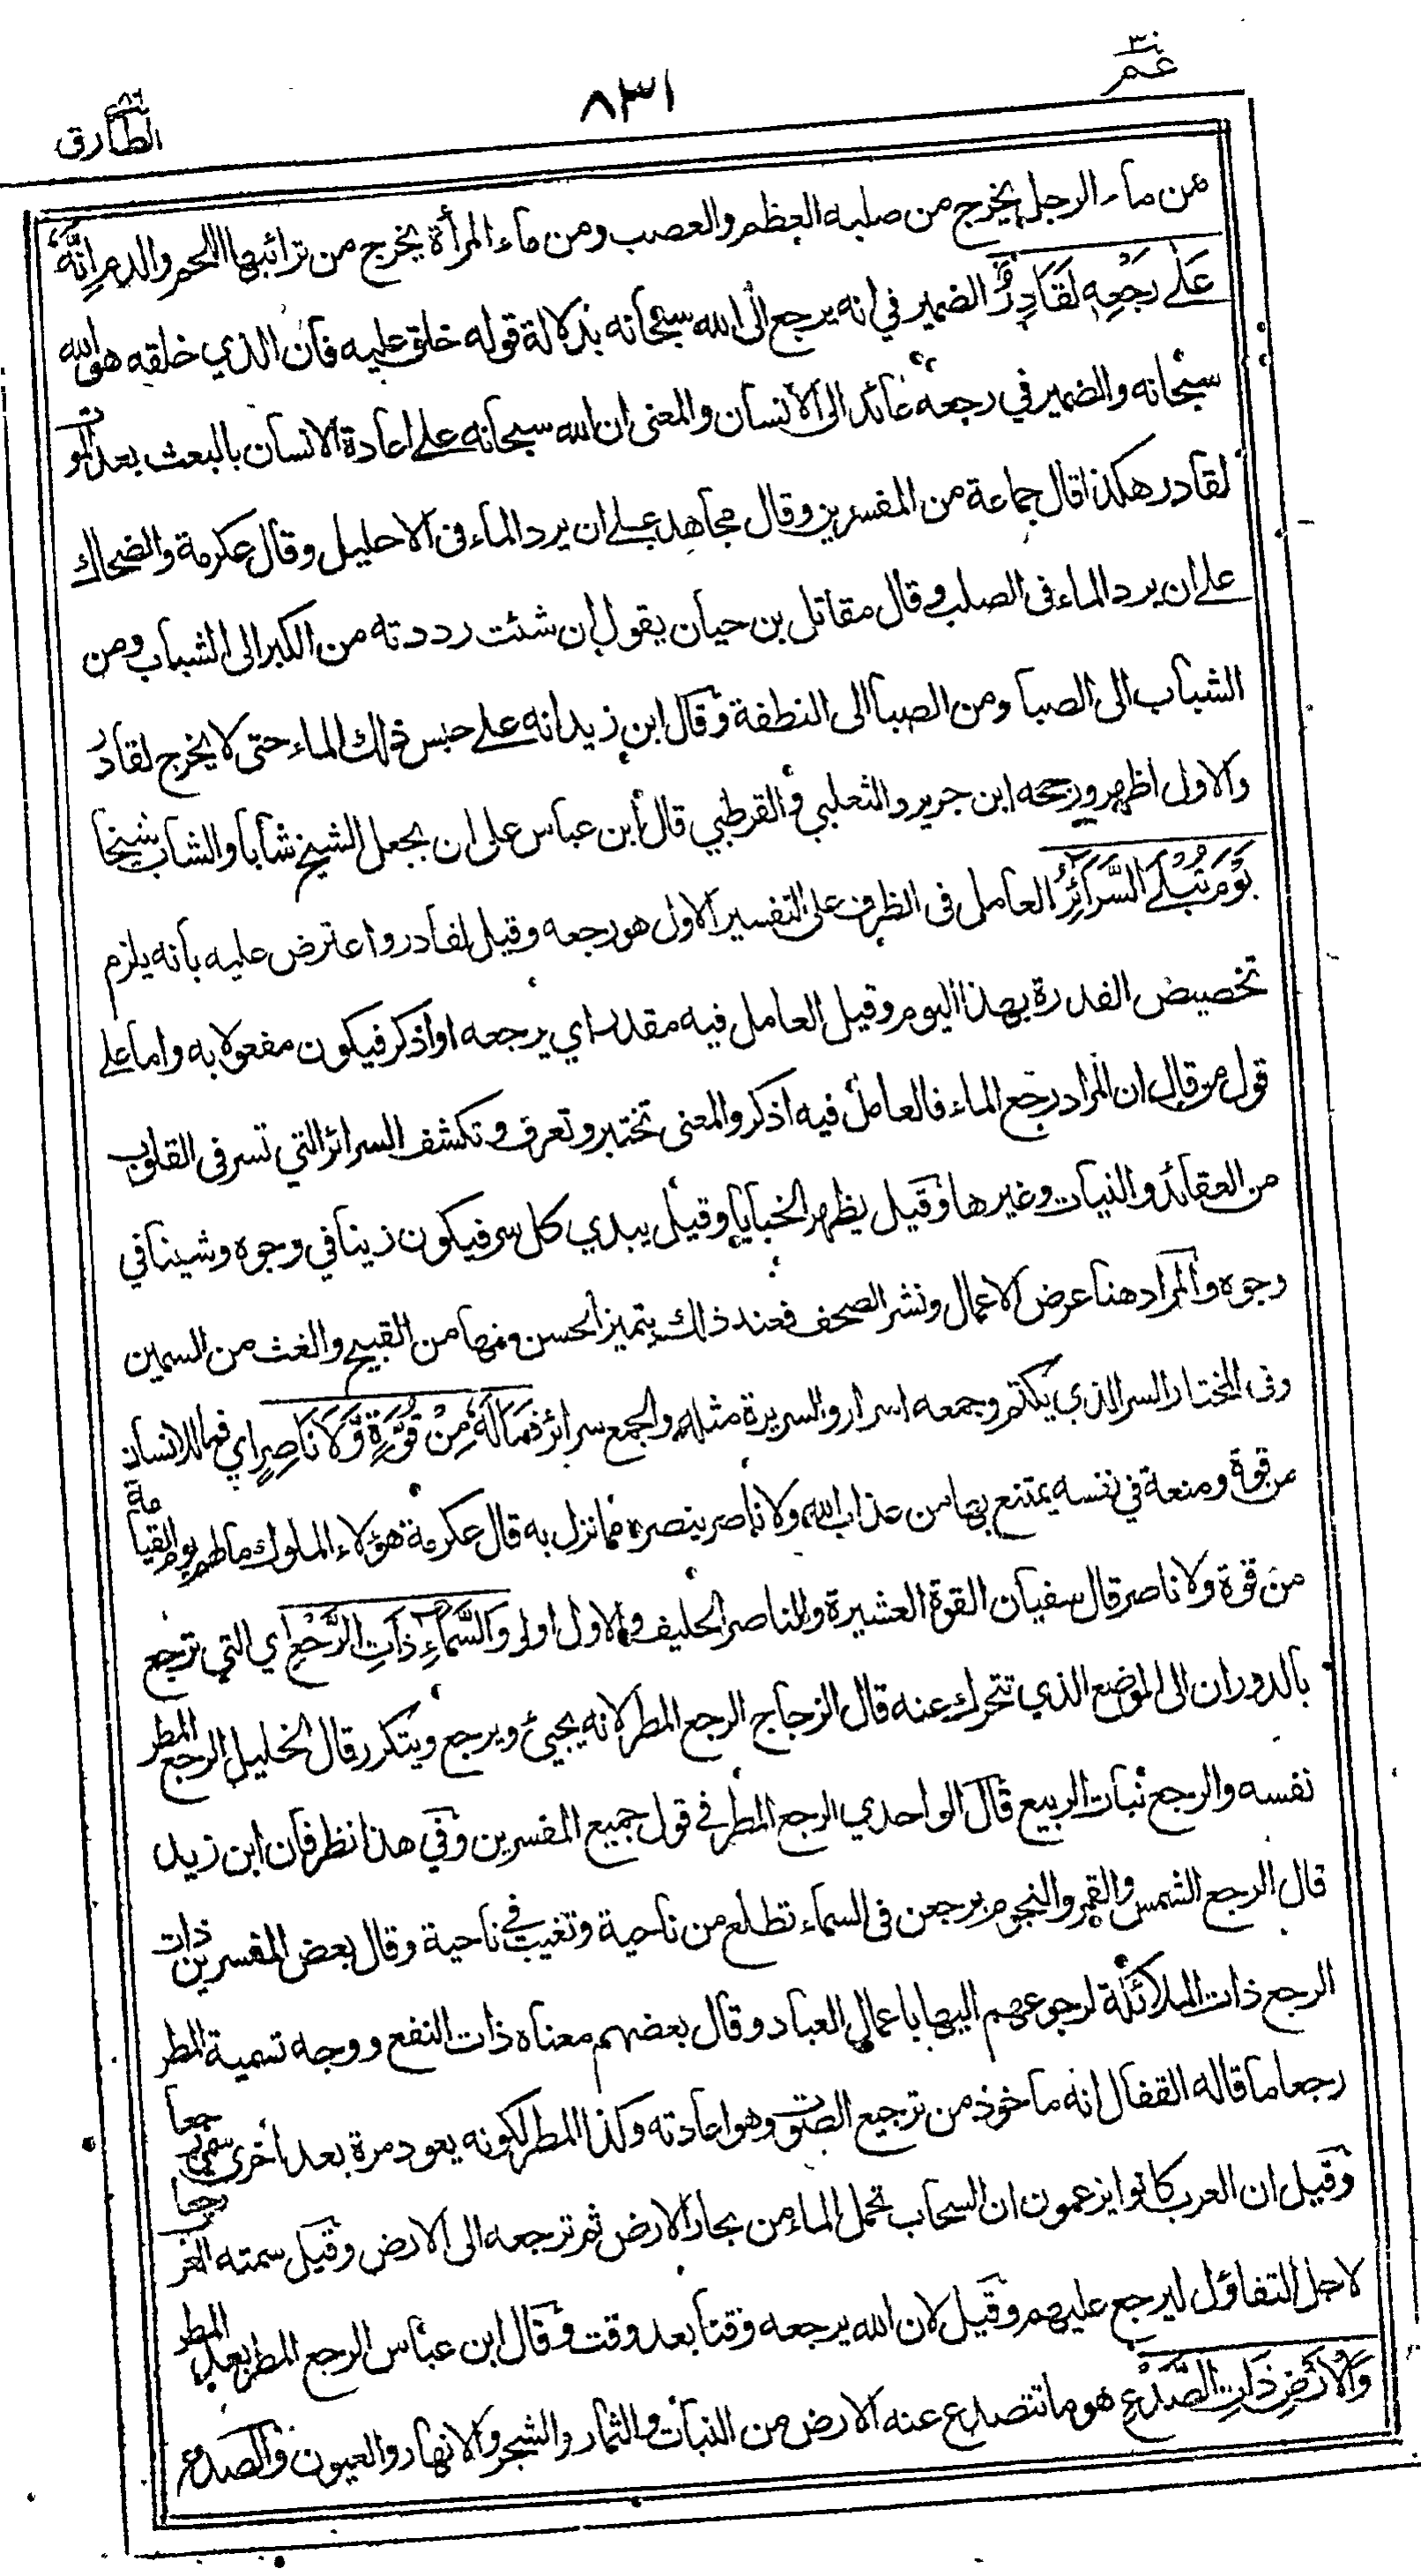 عم ٣٠
٨٣١
الطارق ٨٦
من ماء الرجل يخرج من صلبه العظم والعصب ومن ماء المرأة يخرج من ترائبها اللحم والدم اِنَّهٗ
عَلٰى رَجْعِهٖ لَقَادِرٌ الضمير في انه يرجع الى الله سبحانه بدلالة قوله خلق عليه فان الذي خلقه هو الله
سبحانه والضمير في رجعه عائد الى الانسان والمعنى ان الله سبحانه على اعادة الانسان بالبعث بعد الموت
لقادر هكذا قال جماعة من المفسرين وقال مجاهد على ان يرد الماء في الاحليل وقال عكرمة والضحاك
على ان يرد الماء في الصلب وقال مقاتل بن حيان يقول ان شئت رددته من الكبر الى الشباب ومن
الشباب الى الصبا ومن الصبا الى النطفة وقال ابن زيد انه على حبس ذلك الماء حتى لا يخرج لقادر
والاول اظهر ورجحه ابن جرير والثعلبي والقرطبي قال ابن عباس على ان يجعل الشيخ شابا والشاب شيخا
يَوْمَ تُبْلَى السَّرَآئِرُ العامل في الظرف على التفسير الاول هو رجعه وقيل لقادر واعترض عليه بانه يلزم
تخصيص القدرة بهذا اليوم وقيل العامل فيه مقدر اي يرجعه او اذكر فيكون مفعولا به واما على
قول من قال ان المراد رجع الماء فالعامل فيه اذكر والمعنى تختبر وتعرف وتكشف السرائر التي تسر في القلوب
من العقائد والنيات وغيرها وقيل يظهر الخبايا وقيل يبدي كل سر فيكون زينا في وجوه وشينا في
وجوه والمراد هنا عرض الاعمال ونشر الصحف فعند ذلك يتميز الحسن منها من القبيح والغث من السمين
وفي المختار السر الذي يكتم وجمعه اسرار والسريرة مثله والجمع سرائر فَمَا لَهٗ مِنْ قُوَّةٍ وَّلَا نَاصِرٍ اي فما للانسان
من قوة ومنعة في نفسه يمتنع بها من عذاب الله ولا ناصر ينصره مما نزل به قال عكرمة هؤلاء الملوك ما لهم يوم القيامة
من قوة ولا ناصر قال سفيان القوة العشيرة والناصر الحليف والاول اولى وَالسَّمَآءِ ذَاتِ الرَّجْعِ اي التي ترجع
بالدوران الى الموضع الذي تتحرك عنه قال الزجاج الرجع المطر لانه يجيئ ويرجع ويتكرر قال الخليل الرجع المطر
نفسه والرجع نبات الربيع قال الواحدي الرجع المطر في قول جميع المفسرين وفي هذا نظر فان ابن زيد
قال الرجع الشمس والقمر والنجوم يرجعن في السماء تطلع من ناحية وتغيب في ناحية وقال بعض المفسرين ذات
الرجع ذات الملائكة لرجوعهم اليها باعمال العباد وقال بعضهم معناه ذات النفع ووجه تسمية المطر
رجعا ما قاله القفال انه ماخوذ من ترجيع الصوت وهو اعادته وكذا المطر لكونه يعود مرة بعد اخرى سمي رجعا
وقيل ان العرب كانوا يزعمون ان السحاب تحمل الماء من بحار الارض ثم ترجعه الى الارض وقيل سمته العرب رجعا
لاجل التفاؤل ليرجع عليهم وقيل لان الله يرجعه وقتا بعد وقت وقال ابن عباس الرجع المطر بعد المطر
وَالْاَرْضِ ذَاتِ الصَّدْعِ هو ما تتصدع عنه الارض من النبات والثمار والشجر والانهار والعيون والصدع